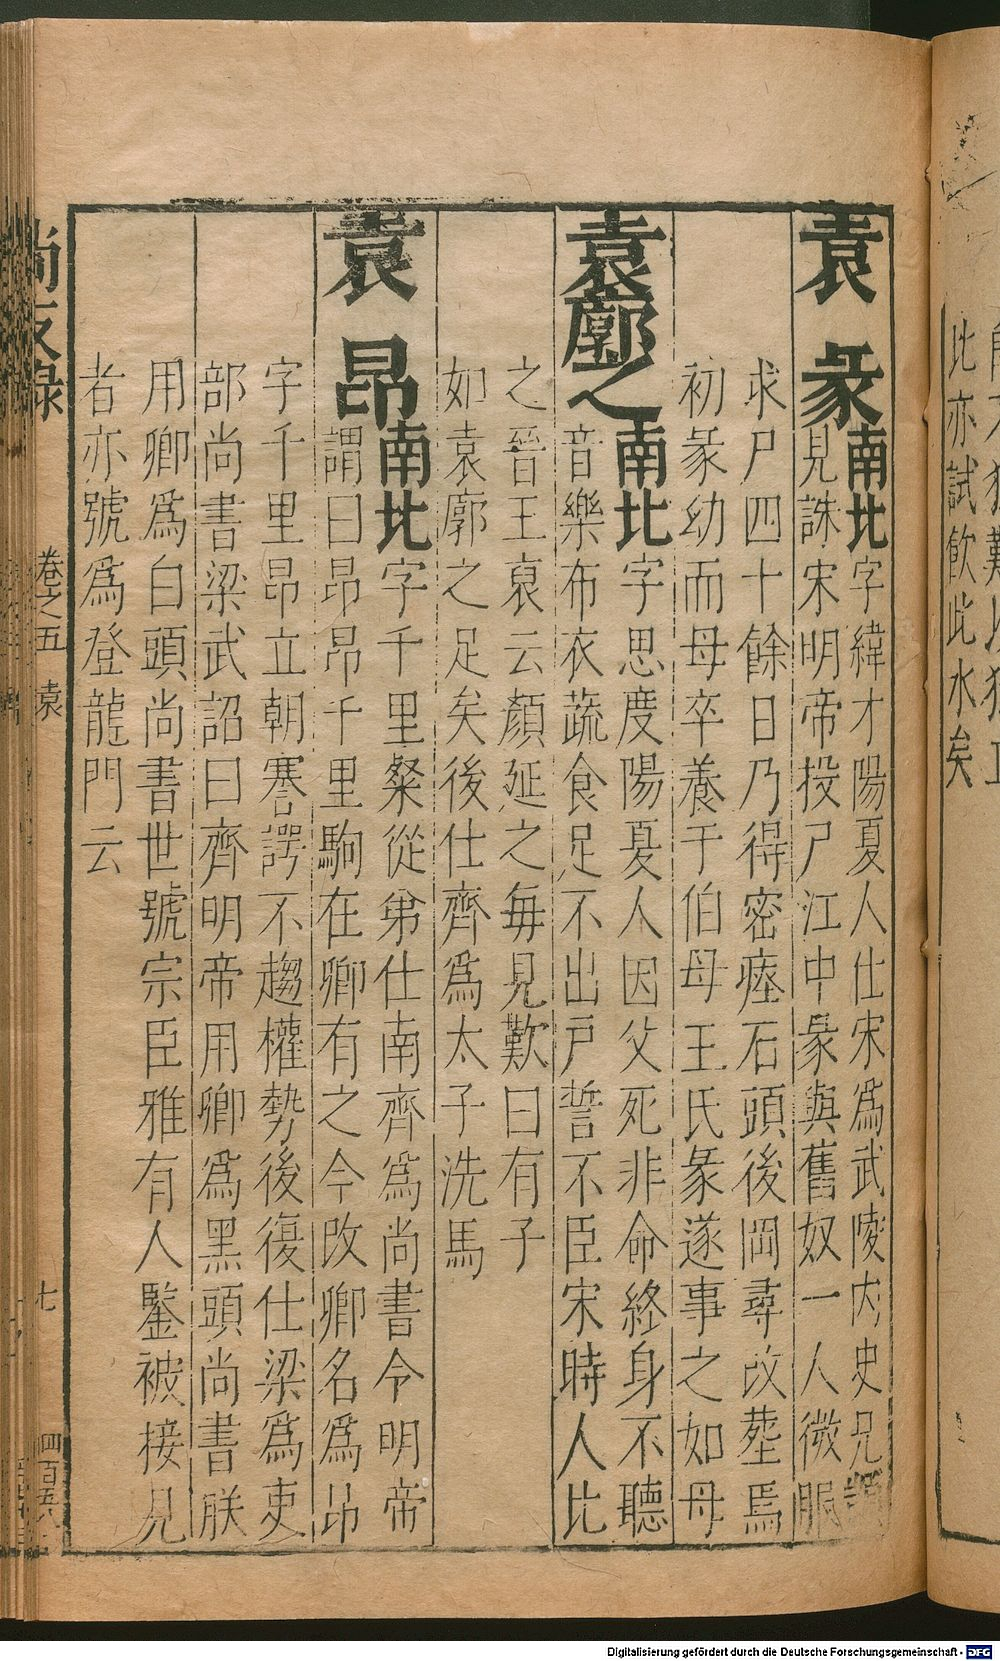 比亦試飲此水矣
袁彖南北字緯才陽夏人仕宋爲武陵内史兄顗
見誅宋明帝投尸江中彖與舊奴一人微服
求尸四十餘日乃得密瘞石頭後岡尋改塟焉
初彖幼而母卒養于伯母王氏彖遂事之如母
袁廓之南北字思度陽夏人因父死非命終身不聽
音樂布衣蔬食足不出戸誓不臣宋時人比
之晉王裒云顏延之毎見歎曰有子
如袁廓之足矣後仕齊爲太子洗馬
袁昂南北字千里粲從弟仕南齊爲尚書令明帝
謂曰昂昂千里駒在卿有之今改卿名爲昂
字千里昂立朝謇諤不趨權勢後復仕梁爲吏
部尚書梁武詔曰齊明帝用卿爲黑頭尚書朕
用卿爲白頭尚書世號宗臣雅有人鑒被接見
者亦號爲登龍門云
尚友錄 卷之五 袁 七 四百五八
Digitalisierung gefördert durch die Deutsche Forschungsgemeinschaft - DFG